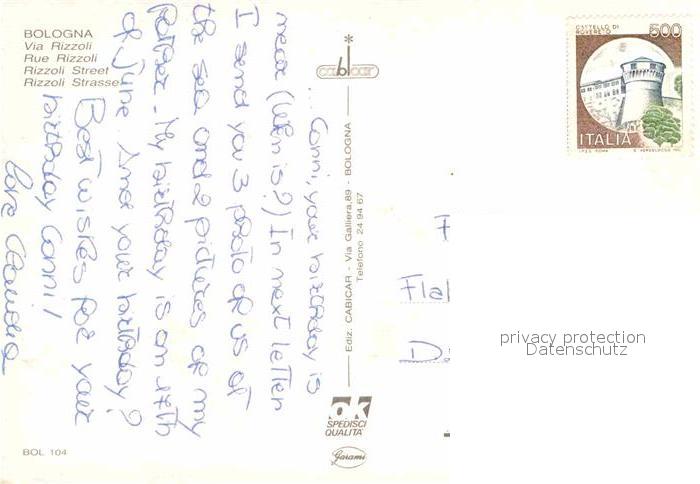 BOLOGNA
Via Rizzoli
Rue Rizzoli
Rizzoli Street
Rizzoli Strasse
... Conni, your birthday is
near (when is?) In next letter
I send you 3 photo of us at
the sea and 2 pictures of my
father. My birthday is on
of June. And your birthday?
Best wishes for your
birthday Conni!
love
BOL 104
cabicar
Ediz. CABICAR - Via Galliera,89 - BOLOGNA
Telefono 24 94 67
ok
SPEDISCI
QUALITÀ
Garami
CASTELLO DI
ROVERETO
500
ITALIA
I.P.Z.S. ROMA
Fla
D
privacy protection
Datenschutz